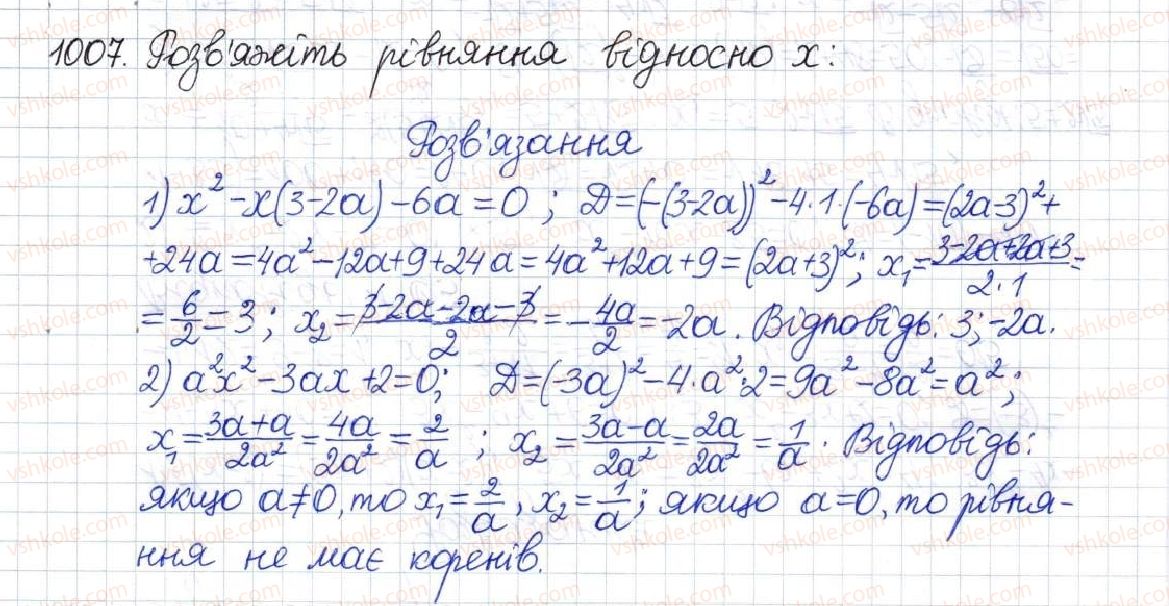 1007. Розв'яжіть рівняння відносно x:
Розв'язання
1) x² - x(3-2a) - 6a = 0; D = (-(3-2a))² - 4·1·(-6a) = (2a-3)² +
+24a = 4a² - 12a + 9 + 24a = 4a² + 12a + 9 = (2a+3)²; x₁ = (3-2a+2a+3)/(2·1) =
= 6/2 = 3; x₂ = (3-2a-2a-3)/2 = -4a/2 = -2a. Відповідь: 3; -2a.
2) a²x² - 3ax + 2 = 0; D = (-3a)² - 4·a²·2 = 9a² - 8a² = a²;
x₁ = (3a+a)/2a² = 4a/2a² = 2/a; x₂ = (3a-a)/2a² = 2a/2a² = 1/a. Відповідь:
якщо a≠0, то x₁ = 2/a, x₂ = 1/a; якщо a=0, то рівня-
ння не має коренів.